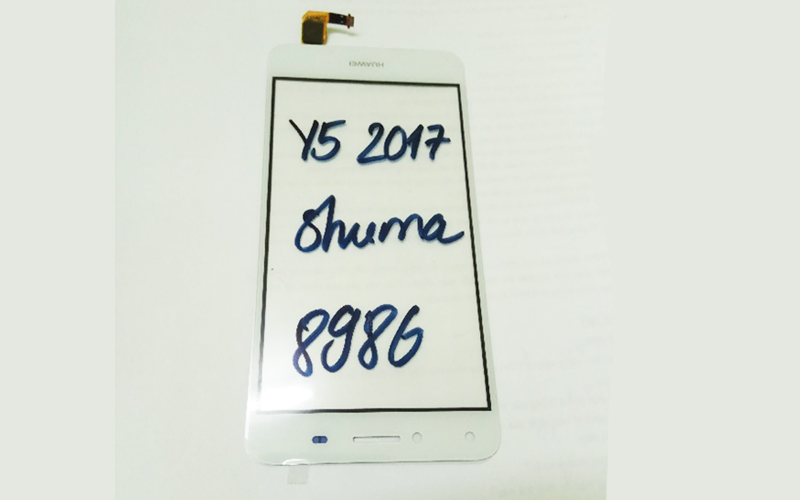 HUAWEI
Y5 2017
Shuma
8986